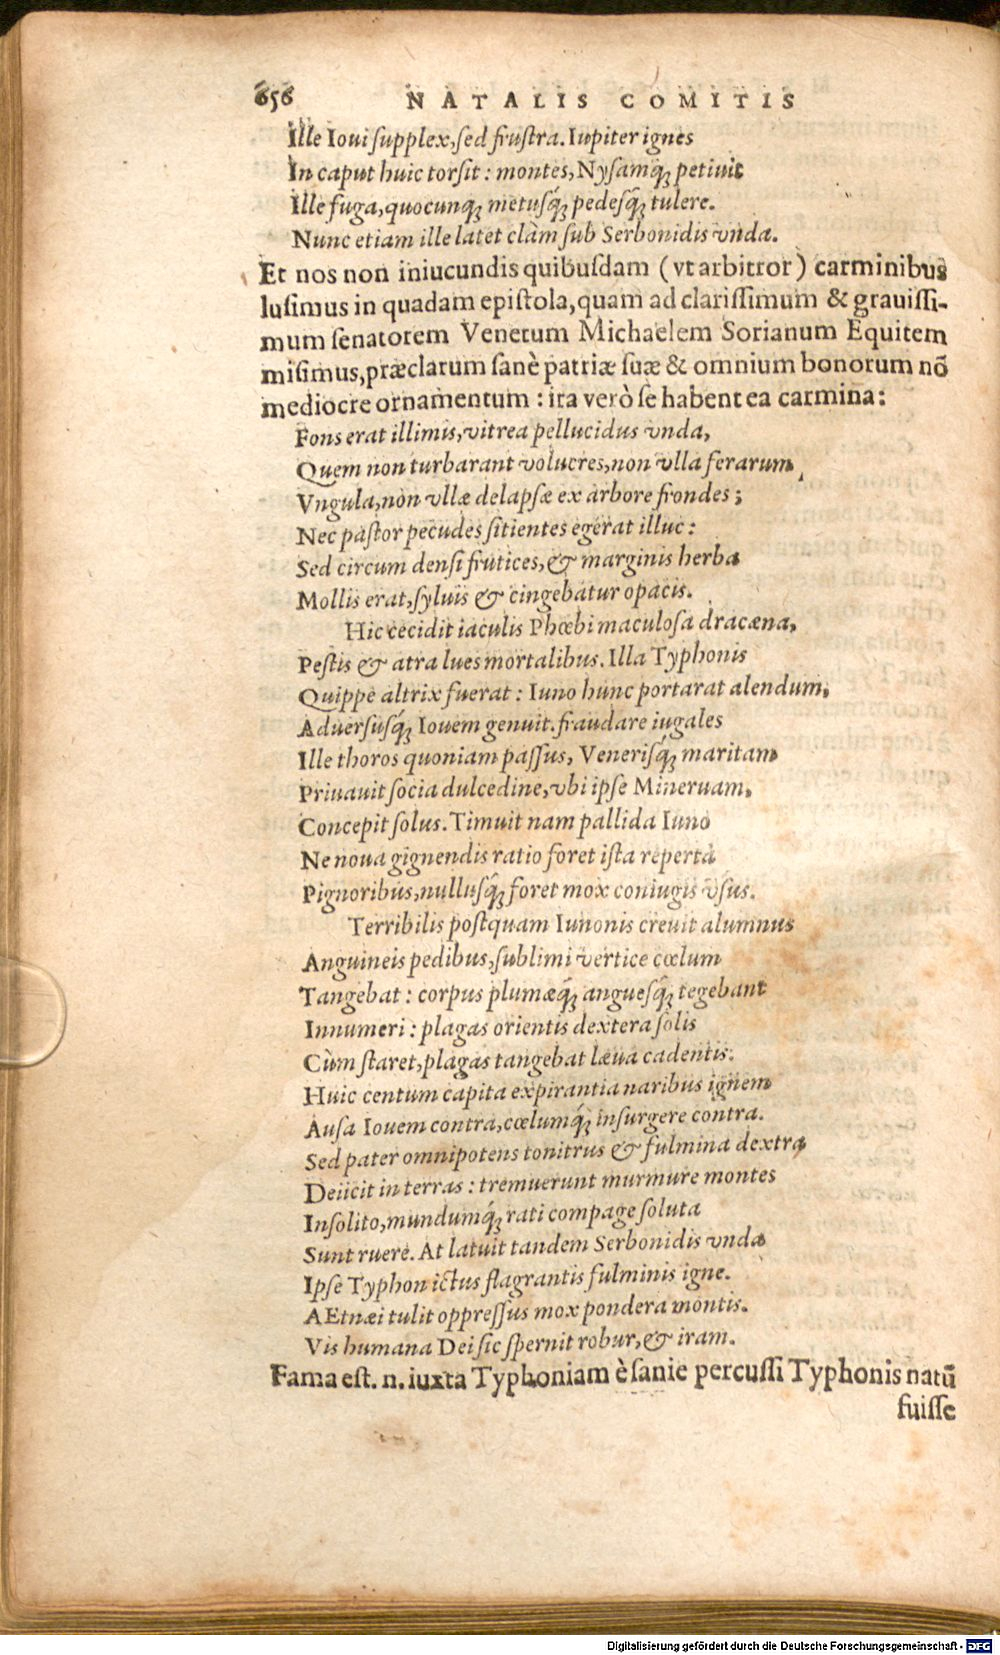 656 NATALIS COMITIS
Ille Ioui supplex, sed frustra. Iupiter ignes
In caput huic torsit: montes, Nysamq́; petiuit
Ille fuga, quocunq; metusq́; pedesq́; tulere.
Nunc etiam ille latet clàm sub Serbonidis vnda.
Et nos non iniucundis quibusdam (vt arbitror) carminibus
lusimus in quadam epistola, quam ad clarissimum & grauissi-
mum senatorem Venetum Michaelem Sorianum Equitem
misimus, præclarum sanè patriæ suæ & omnium bonorum nō
mediocre ornamentum: ita verò se habent ea carmina:
Fons erat illimis, vitrea pellucidus vnda,
Quem non turbarant volucres, non vlla ferarum,
Vngula, non vllæ delapsæ ex arbore frondes;
Nec pastor pecudes sitientes egerat illuc:
Sed circum densi frutices, & marginis herba
Mollis erat, syluis & cingebatur opacis.
Hic cecidit iaculis Phœbi maculosa dracæna,
Pestis & atra lues mortalibus. Illa Typhonis
Quippe altrix fuerat: Iuno hunc portarat alendum,
Aduersusq́; Iouem genuit. fraudare iugales
Ille thoros quoniam passus, Venerisq́; maritam
Priuauit socia dulcedine, vbi ipse Mineruam,
Concepit solus. Timuit nam pallida Iuno
Ne noua gignendis ratio foret ista reperta
Pignoribus, nullusq́; foret mox coniugis vsus.
Terribilis postquam Iunonis creuit alumnus
Anguineis pedibus, sublimi vertice cœlum
Tangebat: corpus plumæq́; anguesq́; tegebant
Innumeri: plagas orientis dextera solis
Cùm staret, plagas tangebat læua cadentis.
Huic centum capita expirantia naribus ignem
Ausa Iouem contra, cœlumq́; insurgere contra.
Sed pater omnipotens tonitrus & fulmina dextra
Deiicit in terras: tremuerunt murmure montes
Insolito, mundumq́; rati compage soluta
Sunt ruere. At latuit tandem Serbonidis vnda
Ipse Typhon ictus flagrantis fulminis igne.
AEtnæi tulit oppressus mox pondera montis.
Vis humana Dei sic spernit robur, & iram.
Fama est. n. iuxta Typhoniam è sanie percussi Typhonis natū
fuisse
Digitalisierung gefördert durch die Deutsche Forschungsgemeinschaft - DFG